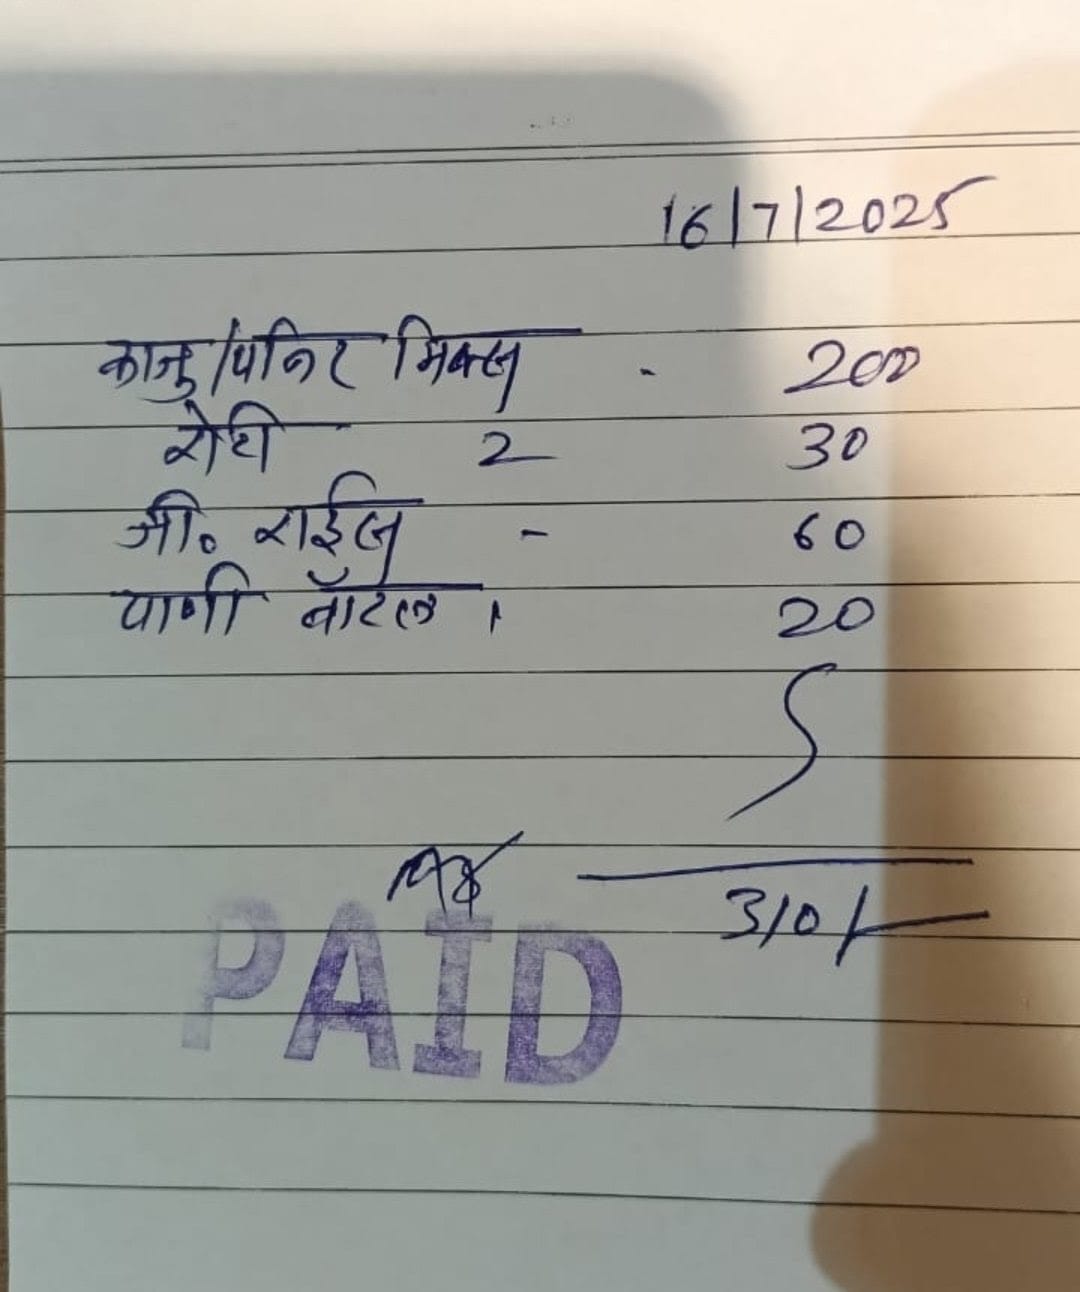 16/7/2025
काजु/पनिर मिक्स - 200
रोटी 2 30
जी. राईस - 60
पाणी बॉटल 1 20
310/-
PAID